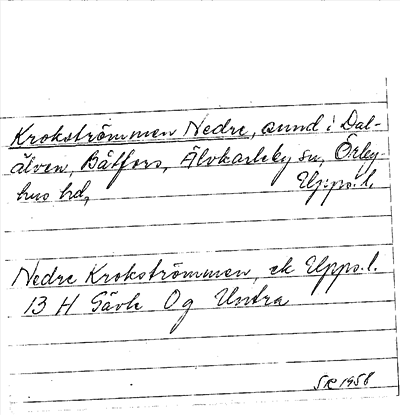 Krokströmmen Nedre, sund i Dal-
älven, Båtfors, Älvkarleby sn, Örby-
hus hd, Upps.l.
Nedre Krokströmmen, ek Upps.l.
13 H Gävle Og Untra
SR 1958